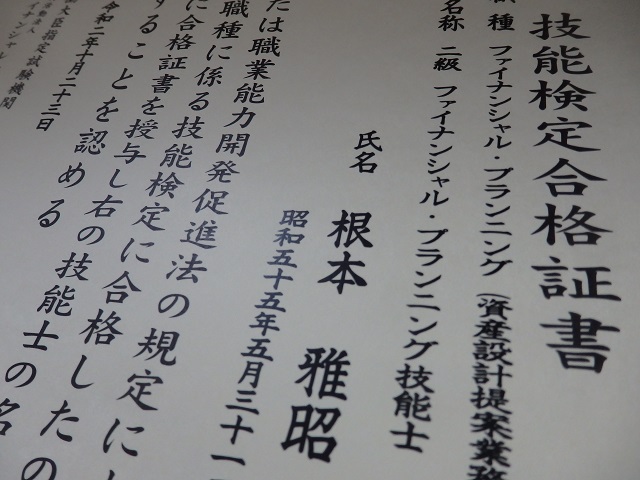 技能検定合格証書
職種 ファイナンシャル・プランニング (資産設計提案業務
名称 二級 ファイナンシャル・プランニング技能士
氏名 根本 雅昭
昭和五十五年五月三十一
たは職業能力開発促進法の規定に
職種に係る技能検定に合格したの
に合格証書を授与し右の技能士の名
することを認める
令和二年十月二十三日
大臣指定試験機関